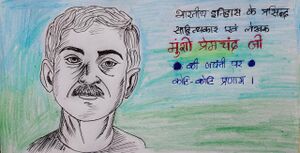 भारतीय इतिहास के प्रसिद्ध
साहित्यकार एवं लेखक
मुंशी प्रेम चंद्र जी
की जयंती पर
कोटि-कोटि प्रणाम ।